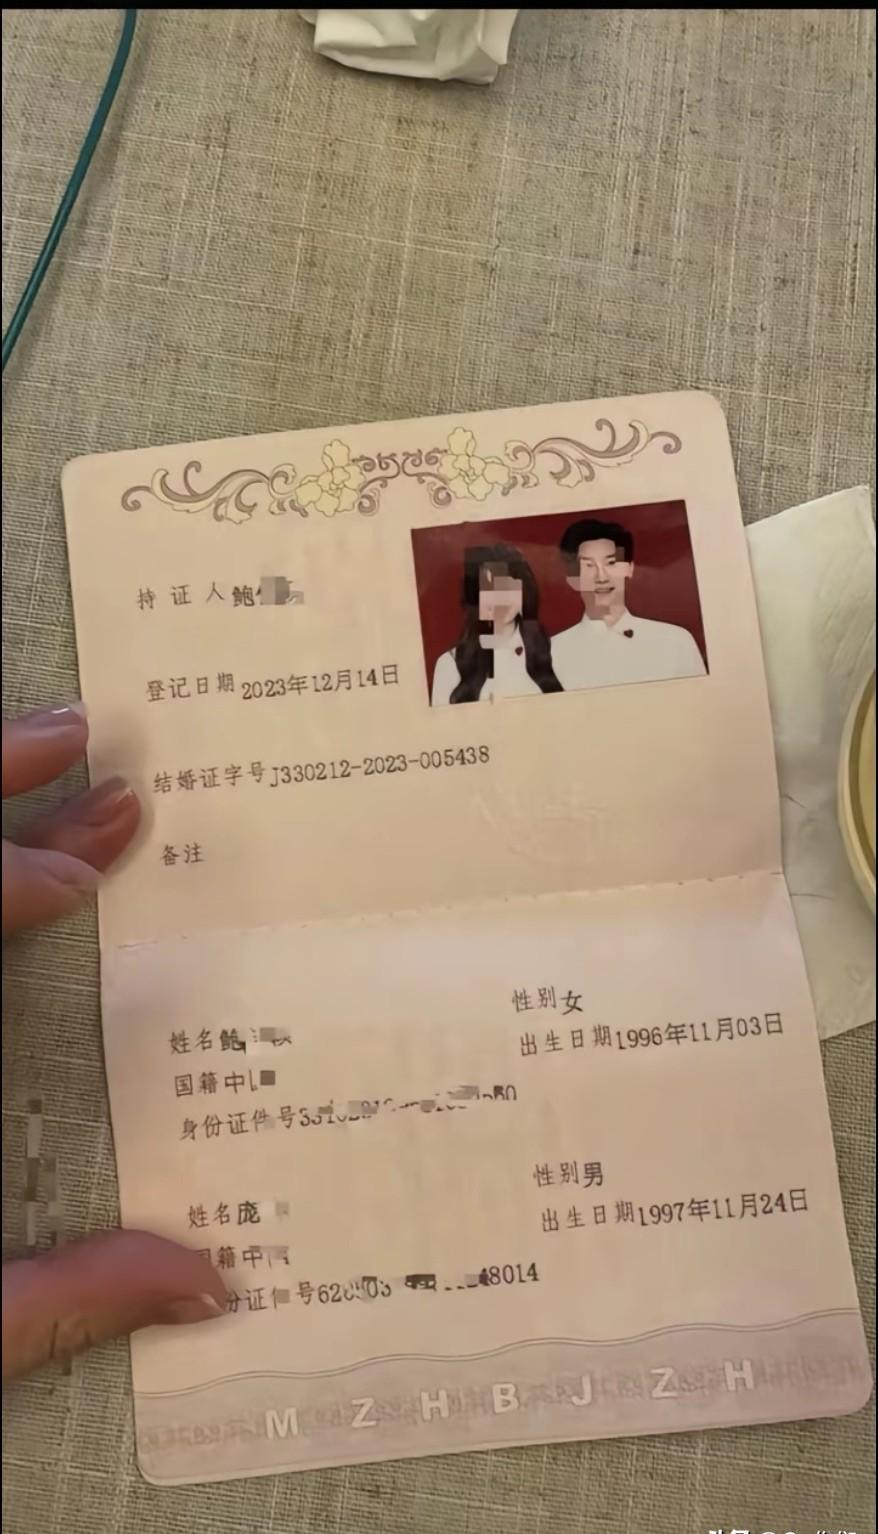 持证人 鲍
登记日期 2023年12月14日
结婚证字号 J330212-2023-005438
备注
姓名 鲍
性别 女
国籍 中
出生日期 1996年11月03日
身份证件号
姓名 庞
性别 男
国籍 中
出生日期 1997年11月24日
份证件号 48014
M Z H B J Z H